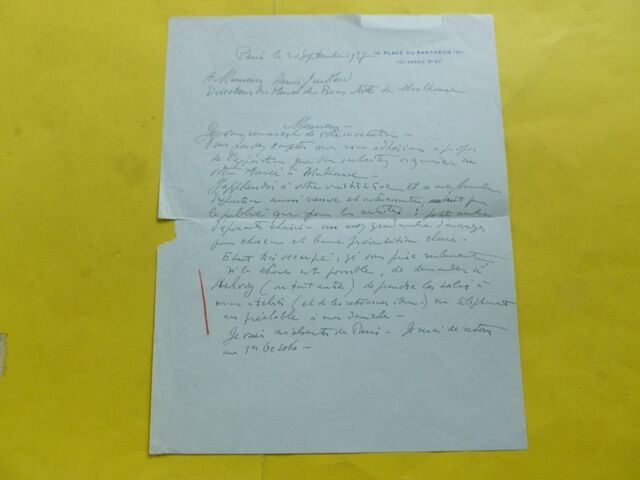 19, PLACE DU PANTHÉON (Vᵉ)
Paris le 20 Septembre 1957
A Monsieur Henri
Directeur du Musée des Beaux Arts de Mulhouse
Monsieur
Je vous remercie de votre invitation –
Vous pouvez compter sur mon adhésion à propos
de l'exposition que vous souhaitez organiser au
votre Musée à Mulhouse –
J'applaudis à votre initiative et à une formule
d'exposition aussi neuve et intéressante, autant pour
le public que pour les artistes :
un assez grand nombre d'ouvrages
pour chacun et bonne présentation claire –
Etant très occupé, je vous prie seulement
si la chose est possible, de demander à
Helvig (ou tout autre) de prendre les toiles à
mon atelier (et de les retourner idem) en téléphonant
au préalable à mon domicile –
Je vais m'absenter de Paris – Je serai de retour
au 1er Octobre –